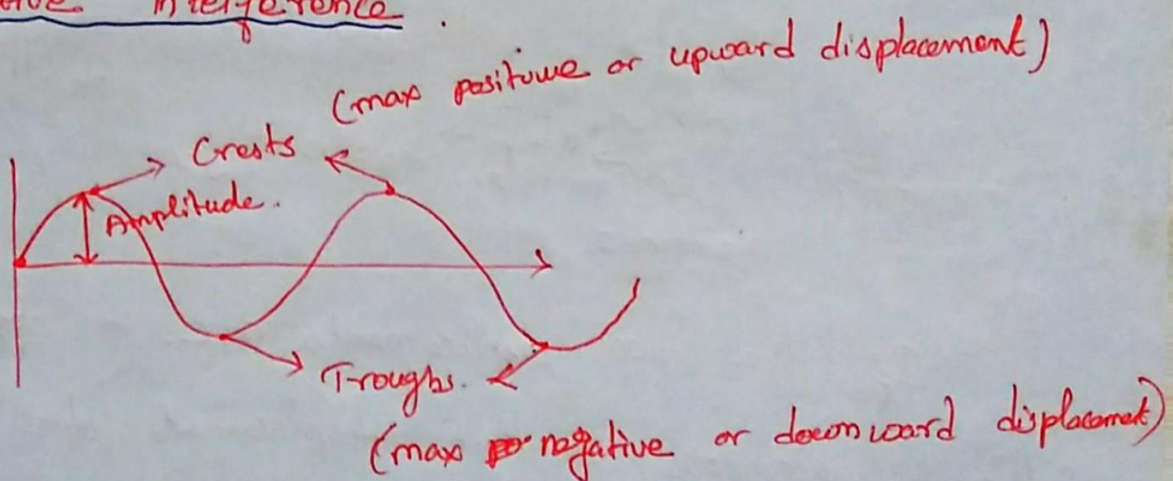 interference.
(max positive or upward displacement)
Crests
Amplitude.
Troughs.
(max negative or downward displacement)